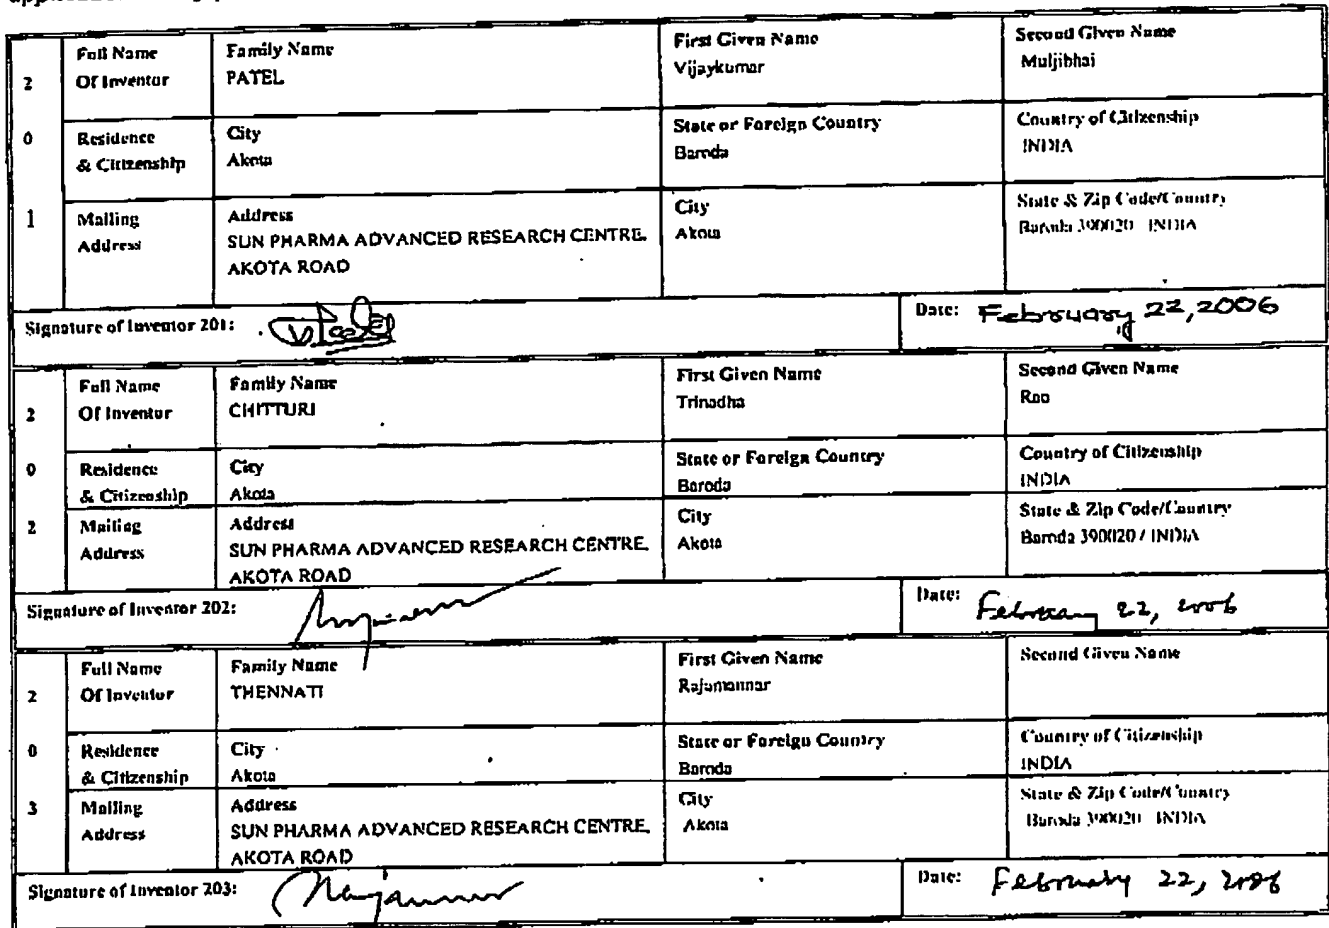 2 0 1
Full Name Of Inventor
Family Name
PATEL
First Given Name
Vijaykumar
Second Given Name
Muljibhai
Residence & Citizenship
City
Akota
State or Foreign Country
Baroda
Country of Citizenship
INDIA
Mailing Address
Address
SUN PHARMA ADVANCED RESEARCH CENTRE,
AKOTA ROAD
City
Akota
State & Zip Code/Country
Baroda 390020 INDIA
Signature of Inventor 201:
Date: February 22, 2006
2 0 2
Full Name Of Inventor
Family Name
CHITTURI
First Given Name
Trinadha
Second Given Name
Rao
Residence & Citizenship
City
Akota
State or Foreign Country
Baroda
Country of Citizenship
INDIA
Mailing Address
Address
SUN PHARMA ADVANCED RESEARCH CENTRE,
AKOTA ROAD
City
Akota
State & Zip Code/Country
Baroda 390020 / INDIA
Signature of Inventor 202:
Date: February 22, 2006
2 0 3
Full Name Of Inventor
Family Name
THENNATI
First Given Name
Rajamannar
Second Given Name
Residence & Citizenship
City
Akota
State or Foreign Country
Baroda
Country of Citizenship
INDIA
Mailing Address
Address
SUN PHARMA ADVANCED RESEARCH CENTRE,
AKOTA ROAD
City
Akota
State & Zip Code/Country
Baroda 390020 INDIA
Signature of Inventor 203:
Date: February 22, 2006